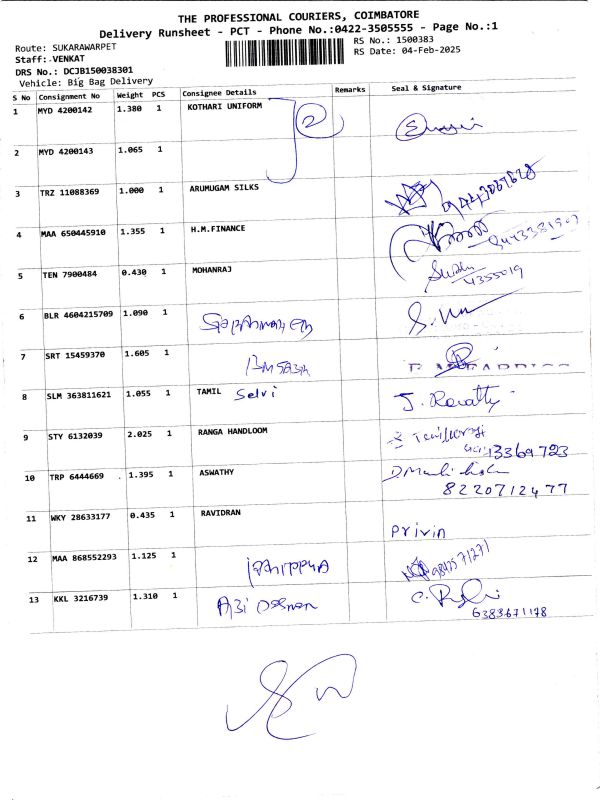 THE PROFESSIONAL COURIERS, COIMBATORE
Delivery Runsheet - PCT - Phone No.:0422-3505555 - Page No.:1
Route: SUKARAWARPET RS No.: 1500383
Staff: VENKAT RS Date: 04-Feb-2025
DRS No.: DCJB150038301
Vehicle: Big Bag Delivery
S No Consignment No Weight PCS Consignee Details Remarks Seal & Signature
1 MYD 4200142 1.380 1 KOTHARI UNIFORM 2
2 MYD 4200143 1.065 1
3 TRZ 11088369 1.000 1 ARUMUGAM SILKS
4 MAA 650445910 1.355 1 H.M.FINANCE
5 TEN 7900484 0.430 1 MOHANRAJ 4355019
6 BLR 4604215709 1.090 1
7 SRT 15459370 1.605 1
8 SLM 363811621 1.055 1 TAMIL Selvi J. Revathy
9 STY 6132039 2.025 1 RANGA HANDLOOM
10 TRP 6444669 1.395 1 ASWATHY
8220712477
11 WKY 28633177 0.435 1 RAVIDRAN Privin
12 MAA 868552293 1.125 1
13 KKL 3216739 1.310 1
6383671178